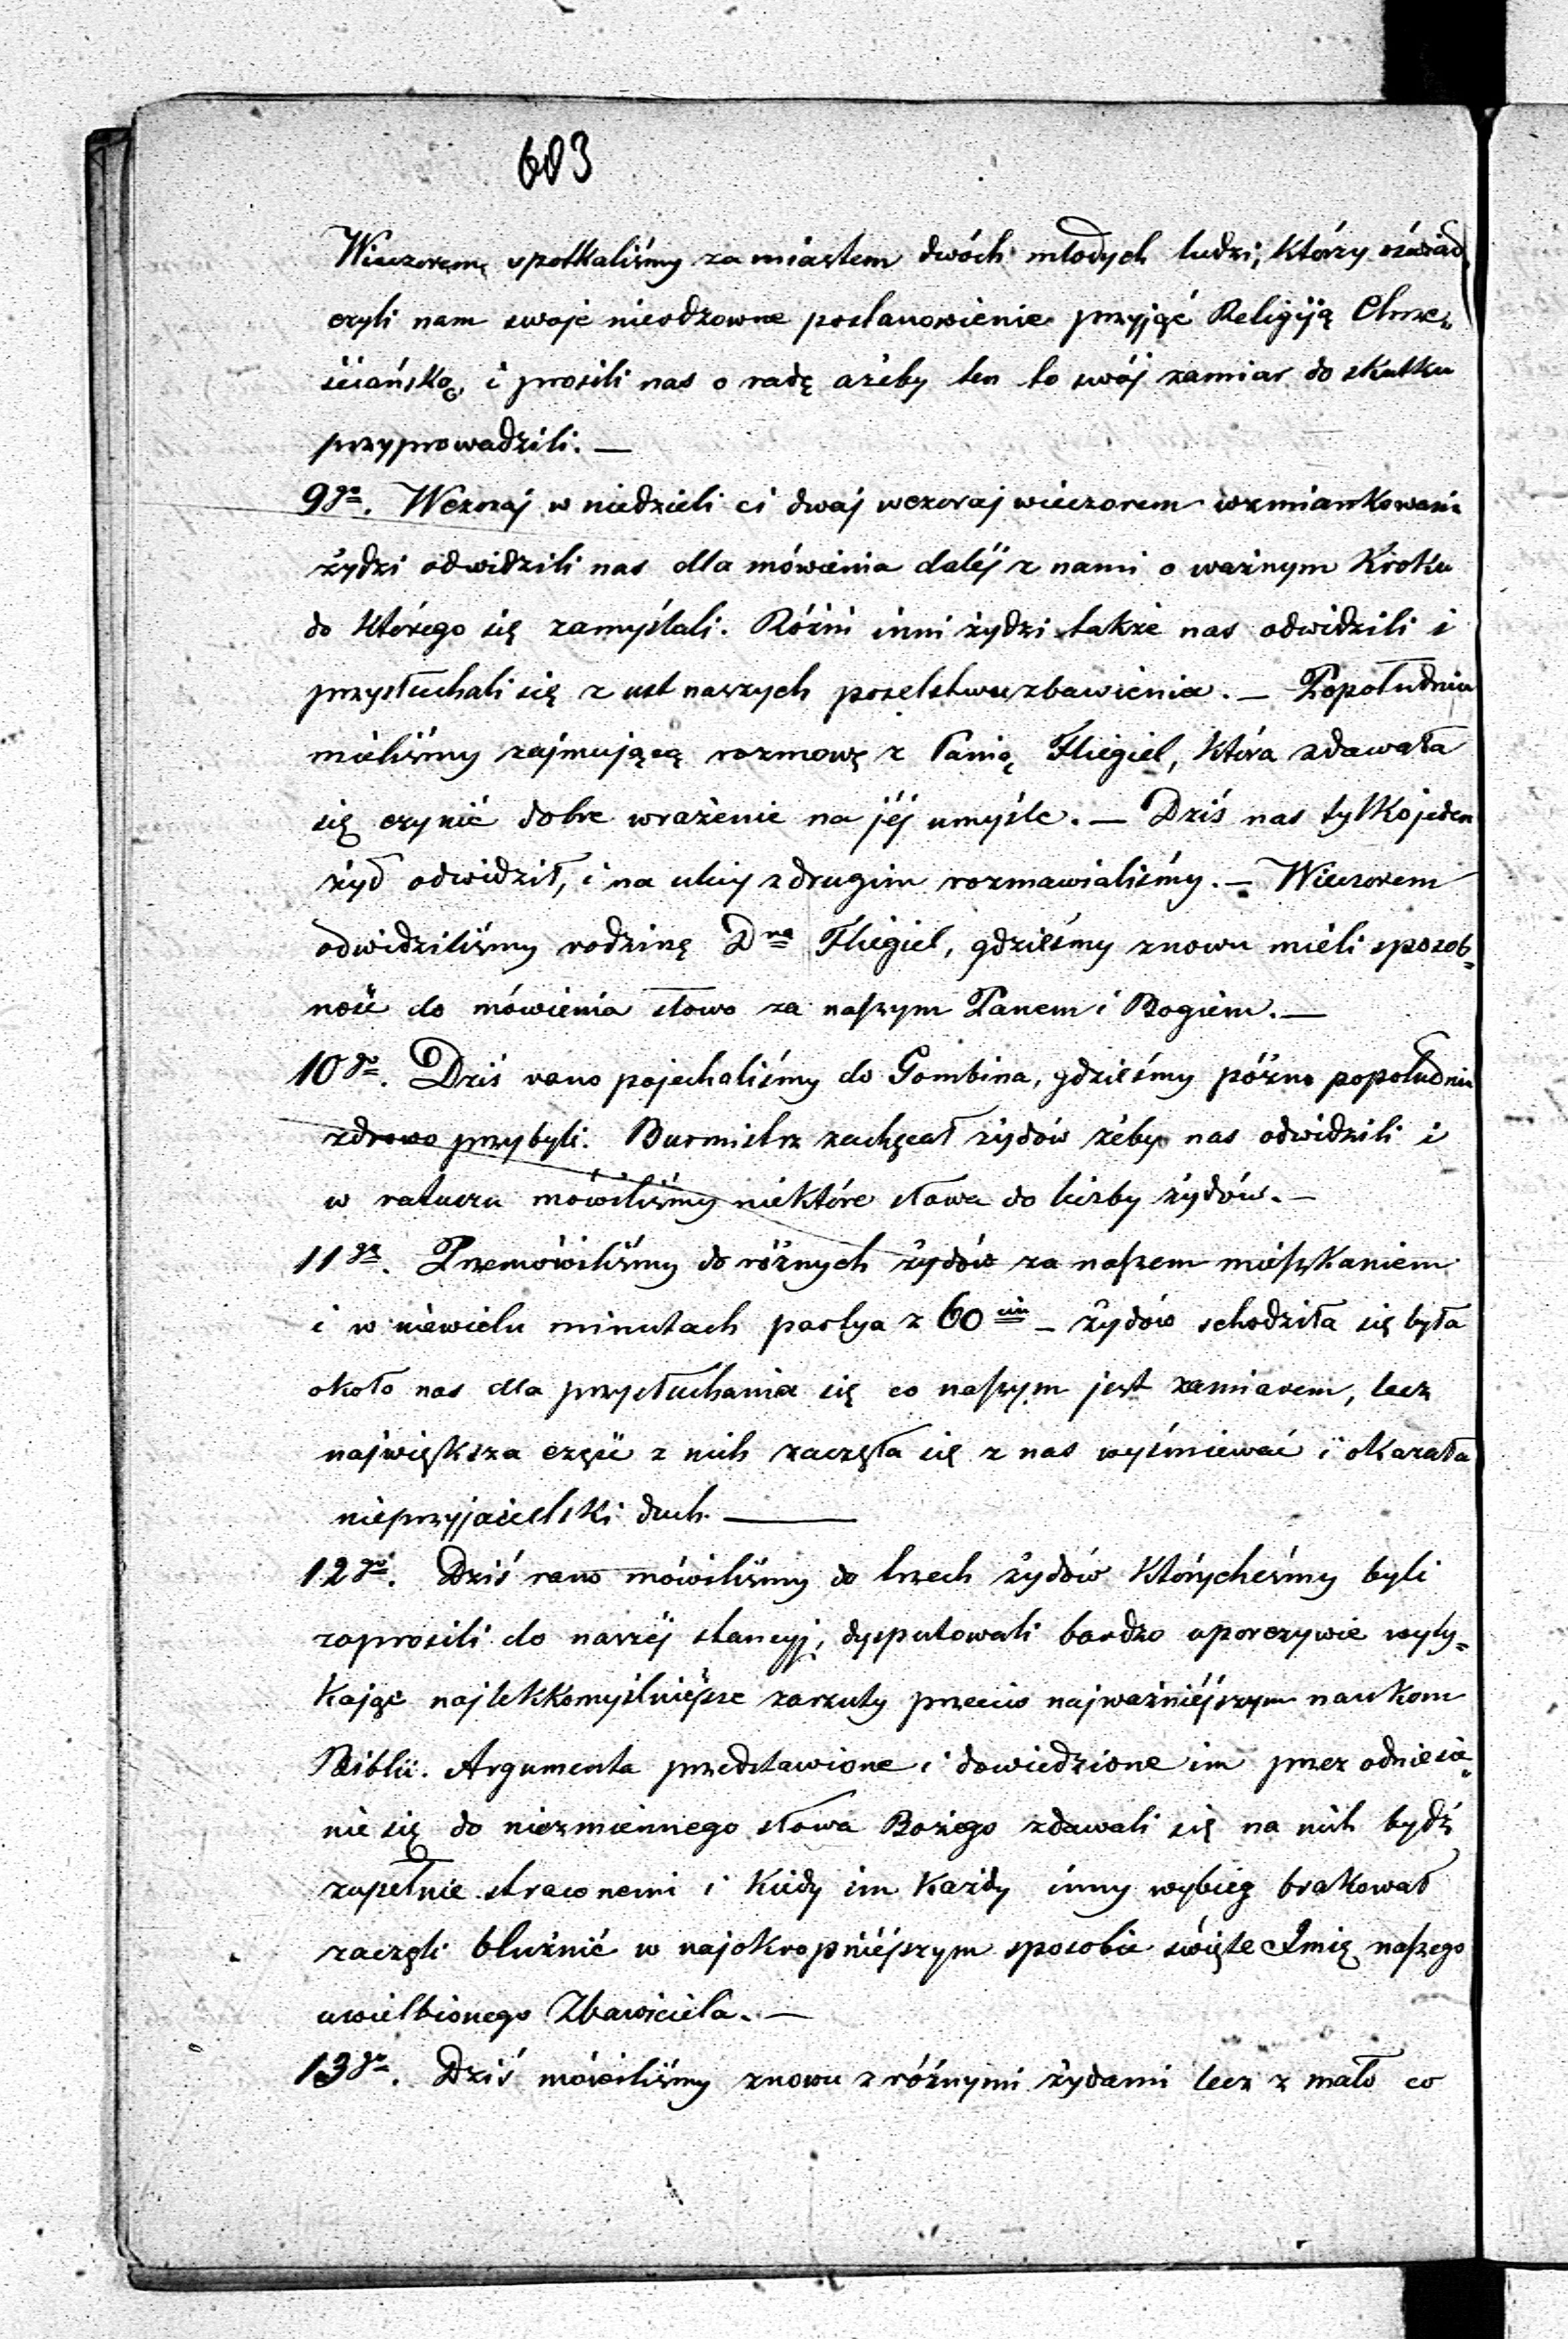 603
Wieczorem spotkaliśmy za miastem dwóch młodych ludzi, którzy oświad„
czyli nam swoje nieodzowne postanowienie przyjąć Religiją Chrze„
ściańską, i prosili nas o radę ażeby ten to swój zamiar do skutku
przyprowadzili. —
9go. Wczoraj w niedzieli ci dwaj wczoraj wieczorem wzmiankowani
żydzi odwidzili nas dla mówienia daléj z nami o ważnym Kroku
do którego się zamyślali. Różni inni żydzi także nas odwidzili i
przysłuchali się z ust naszych poselstwu zbawienia. — Popołudniu
mieliśmy zajmującą rozmowę z Panią Fliegiel, która zdawała
się czynić dobre wrażenie na jéj umyśle. — Dziś nas tylko jeden
żyd odwidził, i na ulicy z drugim rozmawialiśmy. — Wieczorem
odwidziliśmy rodzinę Dra Fliegiel, gdzieśmy znowu mieli sposob„
ność do mówienia słowo za naszym Panem i Bogiem. —
10go. Dziś rano pojechaliśmy do Gombina, gdzieśmy późno popołudniu
zdrowo przybyli. Burmistrz zachęcał żydów żeby nas odwidzili i
w ratuszu mówiliśmy niektóre słowa do liczby żydów. —
11go. Przemówiliśmy do różnych żydów za naszem mieszkaniem
i w niewielu minutach partya z 60ciu — żydów schodziła się była
około nas dla przysłuchania się co naszym jest zamiarem, lecz
największa część z nich zaczęła się z nas wyśmiewać i okazała
nieprzyjacielski duch. —
12go. Dziś rano mówiliśmy do trzech żydów którycheśmy byli
zaprosili do naszéj stancyj, dysputowali bardzo uporczywie wyty„
kając najlekkomyślniéjsze zarzuty przeciw najważniéjszym naukom
Biblii. Argumenta przedstawione i dowiedzione im przez odniesie„
nie się do niezmiennego słowa Bożego zdawali się na nich bydź
zupełnie straconemi i kiedy im każdy inny wybieg brakował
zaczęli bluźnić w najokropniéjszym sposobie święte Imię naszego
uwielbionego Zbawiciela. —
13go. Dziś mówiliśmy znowu z różnymi żydami lecz z mało co